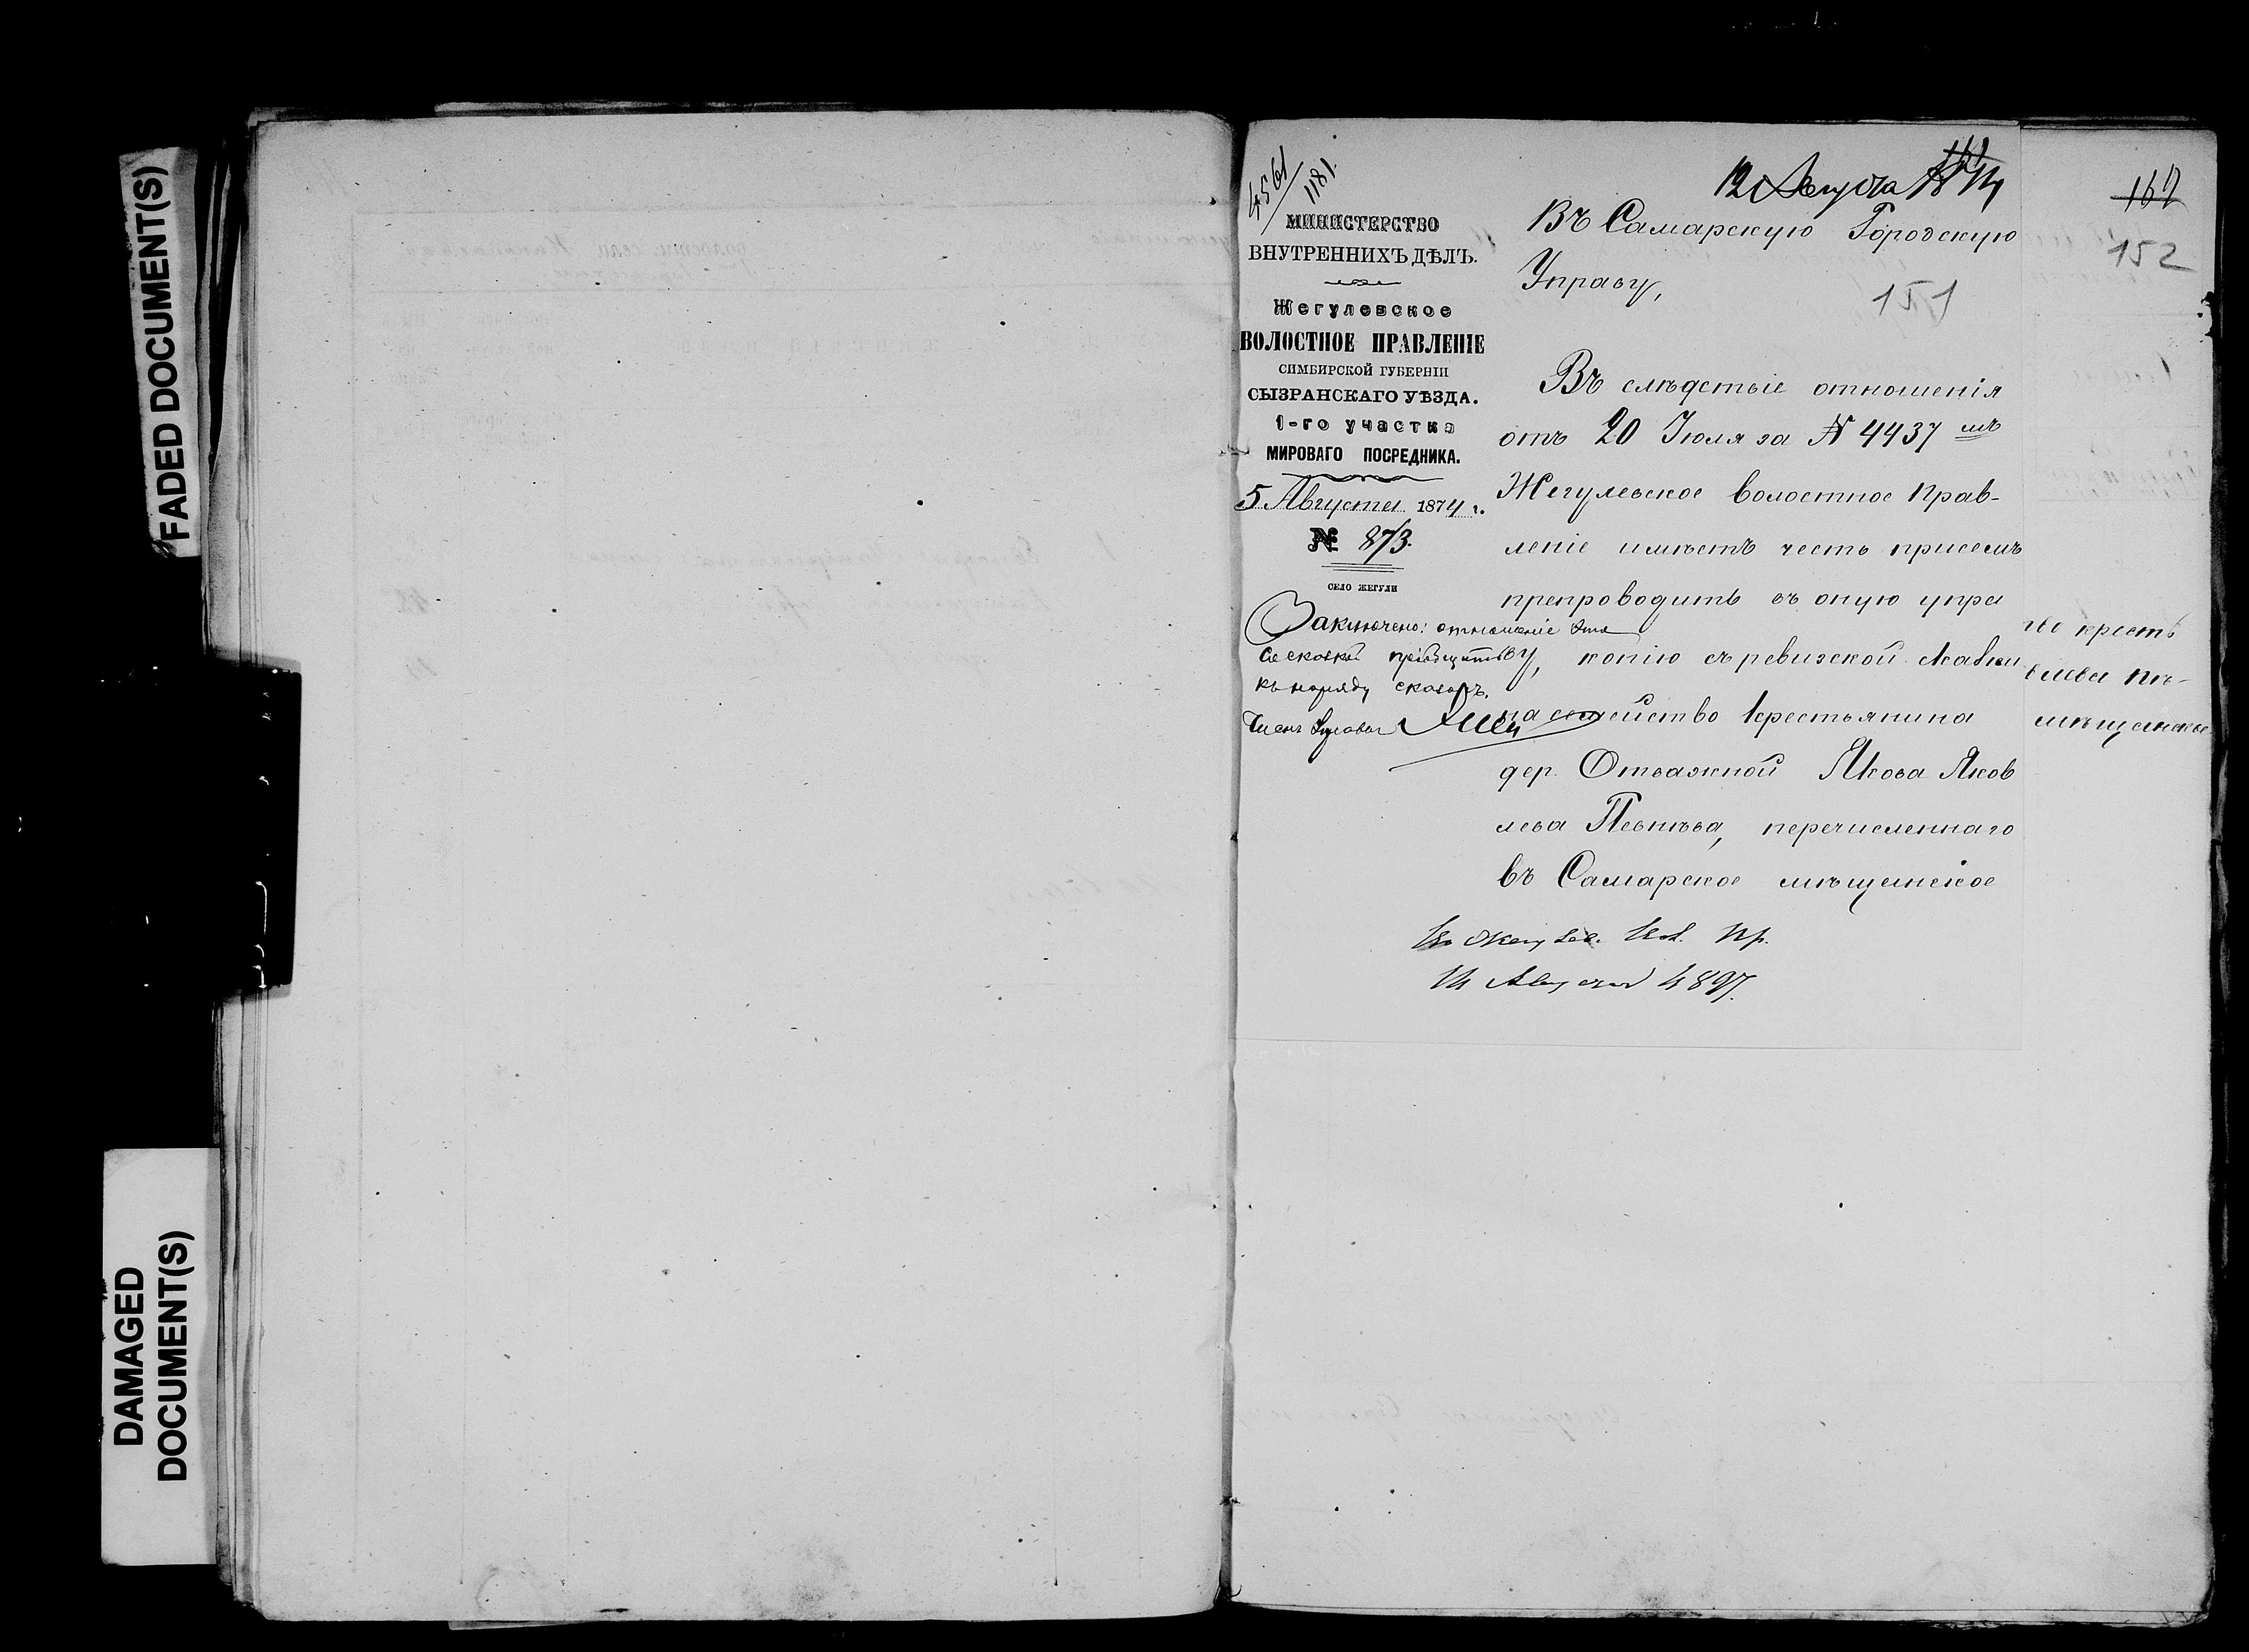 FADED DOCUMENT(S)
DAMAGED
DOCUMENT(S)
4561
1181.
МИНИСТЕРСТВО
ВНУТРЕННИХЪ ДѢЛЪ.
Жегулевское
ВОЛОСТНОЕ ПРАВЛЕНІЕ
СИМБИРСКОЙ ГУБЕРНІИ
СЫЗРАНСКАГО УѢЗДА.
1-го участка
МИРОВАГО ПОСРЕДНИКА.
5 Августа 1874 г.
№ 873.
СЕЛО ЖЕГУЛИ
Заключено: отношеніе это
со сказкой пріобщить
къ наряду сказокъ.
Членъ Управы
12 Августа
Въ Самарскую Городскую
Управу,
151
Въ слѣдствіе отношенія
отъ 20 Іюля за № 4437 мъ
Жегулевское волостное прав-
леніе имѣетъ честь присемъ
препроводить въ оную упра
ву, копію съ ревизской скаски
на семейство крестьянина
дер. Отважной Якова Яков
лева Певнева, перечисленнаго
въ Самарское мѣщанское
Въ Жегулев. Вол. Пр.
14 Августа 4897.
162
152
во крестъ
мѣщанское